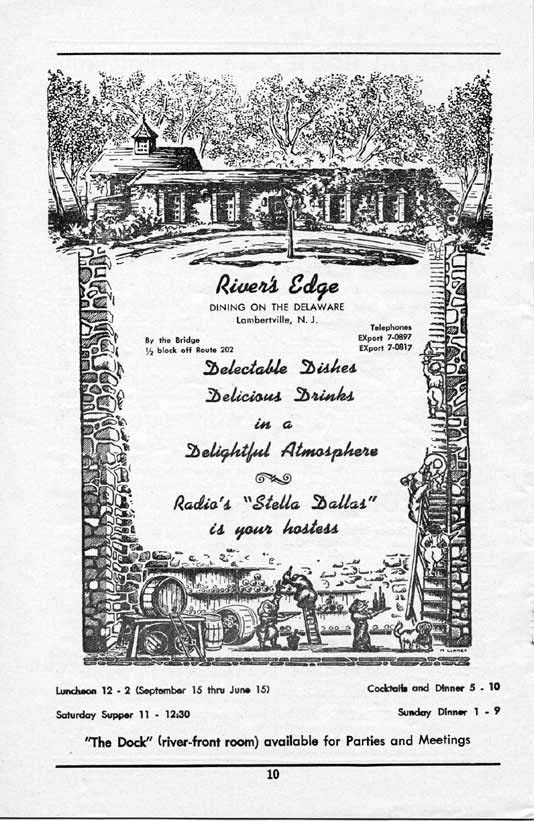 River's Edge
DINING ON THE DELAWARE
Lambertville, N. J.
By the Bridge
½ block off Route 202
Telephones
EXport 7-0897
EXport 7-0817
Delectable Dishes
Delicious Drinks
in a
Delightful Atmosphere
Radio's "Stella Dallas"
is your hostess
Luncheon 12 - 2 (September 15 thru June 15)
Cocktails and Dinner 5 - 10
Saturday Supper 11 - 12:30
Sunday Dinner 1 - 9
"The Dock" (river-front room) available for Parties and Meetings
10